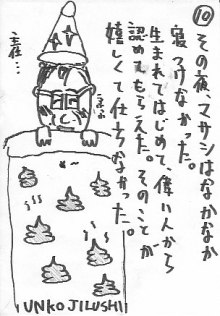 ⑩
その夜、マサシはなかなか
寝つけなかった。
生まれてはじめて、偉い人から
認めてもらえた。そのことが
嬉しくて仕方なかった。
主任…
UNKO JILUSHI